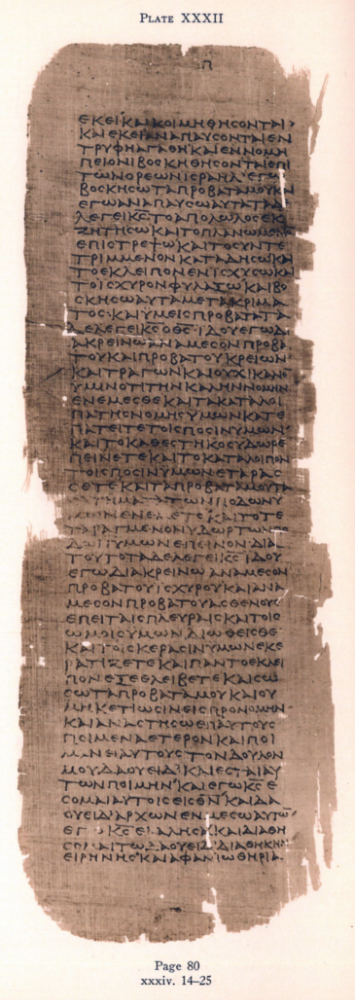 Plate XXXII
π
ΕΚΕΙΚΑΙΚΟΙΜΗΘΗCΟΝΤΑΙ
ΚΑΙΕΚΕΙΑΝΑΠΑΥCΟΝΤΑΙΕΝ
ΤΡΥΦΗΑΓΑΘΗΚΑΙΕΝΝΟΜΗ
ΠΕΙΟΝΙΒΟCΚΗΘΗCΟΝΤΑΙΕΠΙ
ΤΩΝΟΡΕΩΝΙCΡΑΗΛ'ΕΓΩ
ΒΟCΚΗCΩΤΑΠΡΟΒΑΤΑΜΟΥΚΑΙ
ΕΓΩΑΝΑΠΑΥCΩΑΥΤΑΤΑΔΕ
ΛΕΓΕΙΚ̅C̅ΤΟΑΠΟΛΩΛΟCΕΚ
ΖΗΤΗCΩ'ΚΑΙΤΟΠΛΑΝΩΜΕΝΟ
ΕΠΙCΤΡΕΨΩ'ΚΑΙΤΟCΥΝΤΕ
ΤΡΙΜΜΕΝΟΝΚΑΤΑΔΗCΩΚΑΙ
ΤΟΕΚΛΕΙΠΟΝΕΝΙCΧΥCΩΚΑΙ
ΤΟΙCΧΥΡΟΝΦΥΛΑΞΩΚΑΙΒΟ
CΚΗCΩΑΥΤΑΜΕΤΑΚΡΙΜΑ
ΤΟC·ΚΑΙΥΜΕΙCΠΡΟΒΑΤΑΤΑ
ΔΕΛΕΓΕΙΚ̅C̅ΟΘ̅C̅ΙΔΟΥΕΓΩΔΙ
ΑΚΡΕΙΝΩΑΝΑΜΕCΟΝΠΡΟΒΑ
ΤΟΥΚΑΙΠΡΟΒΑΤΟΥΚΡΕΙΩΝ
ΚΑΙΤΡΑΓΩΝΚΑΙΟΥΧΙΚΑΝΟ
ΥΜΙΝΟΤΙΤΗΝΚΑΛΗΝΝΟΜΗΝ
ΕΝΕΜΕCΘΕΚΑΙΤΑΚΑΤΑΛΟΙ
ΠΑΤΗCΝΟΜΗCΥΜΩΝΚΑΤΕ
ΠΑΤΕΙΤΕΤΟΙCΠΟCΙΝΥΜΩΝ
ΚΑΙΤΟΚΑΘΕCΤΗΚΟCΥΔΩΡΕ
ΠΕΙΝΕΤΕΚΑΙΤΟΚΑΤΑΛΟΙΠΟΝ
ΤΟΙCΠΟCΙΝΥΜΩΝΕΤΑΡΑC
CΕΤΕΚΑΙΤΑΠΡΟΒΑΤΑΜΟΥΤΑ
ΤΩΝΠΟΔΩΝΥ
ΚΑΙΤΟΤΕ
ΤΑΡΑΓΜΕΝΟΝΥΔΩΡ
ΥΜΩΝΕΠΙΝΟΝΔΙΑ
ΤΟΥΤΟΤΑΔΕΛΕΓΕΙΚ̅C̅ΙΔΟΥ
ΕΓΩΔΙΑΚΡΕΙΝΩΑΝΑΜΕCΟΝ
ΠΡΟΒΑΤΟΥΙCΧΥΡΟΥΚΑΙΑΝΑ
ΜΕCΟΝΠΡΟΒΑΤΟΥΑCΘΕΝΟΥC
ΕΠΕΙΤΑΙCΠΛΕΥΡΑΙCΚΑΙΤΟΙC
ΩΜΟΙCΥΜΩΝΔΙΩΘΕΙCΘΕ
ΚΑΙΤΟΙCΚΕΡΑCΙΝΥΜΩΝΕΚΕ
ΡΑΤΙΖΕΤΕΚΑΙΠΑΝΤΟΕΚΛΕΙ
ΠΟΝΕΞΕΘΛΕΙΒΕΤΕΚΑΙCΩ
CΩΤΑΠΡΟΒΑΤΑΜΟΥΚΑΙΟΥ
ΜΗΚΕΤΙΩCΙΝΕΙCΠΡΟΝΟΜΗΝ
ΚΑΙΑΝΑCΤΗCΩΕΠΑΥΤΟΥC
ΠΟΙΜΕΝΑΕΤΕΡΟΝΚΑΙΠΟΙ
ΜΑΝΕΙΑΥΤΟΥCΤΟΝΔΟΥΛΟΝ
ΜΟΥΔΑΟΥΕΙΔ'ΚΑΙΕCΤΑΙΑΥ
ΤΩΝΠΟΙΜΗΝ'ΚΑΙΕΓΩΚ̅C̅Ε
CΟΜΑΙΑΥΤΟΙCΕΙCΘ̅Ν̅'ΚΑΙΔΑ
ΟΥΕΙΔ'ΑΡΧΩΝΕΝΜΕCΩΑΥΤΩ
ΕΓΩΚ̅C̅ΕΛΑΛΗCΑ'ΚΑΙΔΙΑΘΗ
CΟΜΑΙΤΩΔΑΟΥΕΙΔΔΙΑΘΗΚΗΝ
ΕΙΡΗΝΗC'ΚΑΙΑΦΑΝΙΩΘΗΡΙΑ
Page 80
xxxiv. 14–25